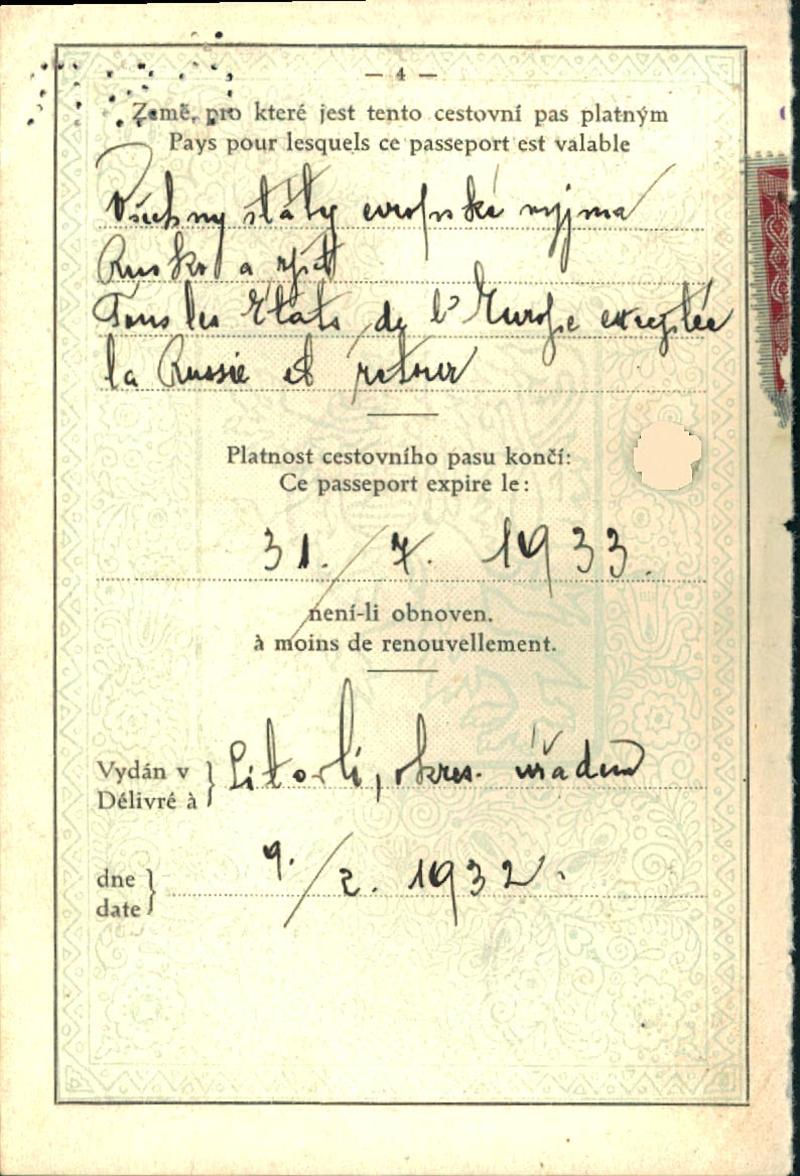 — 4 —
Země, pro které jest tento cestovní pas platným
Pays pour lesquels ce passeport est valable
Všechny státy evropské vyjma
Rusko a zpět
Tous les Etats de l'Europe exceptée
la Russie et retour
Platnost cestovního pasu končí:
Ce passeport expire le:
31./7. 1933.
není-li obnoven.
à moins de renouvellement.
Vydán v } Litovli, okres. úřadem
Délivré à
dne } 9./2. 1932.
date